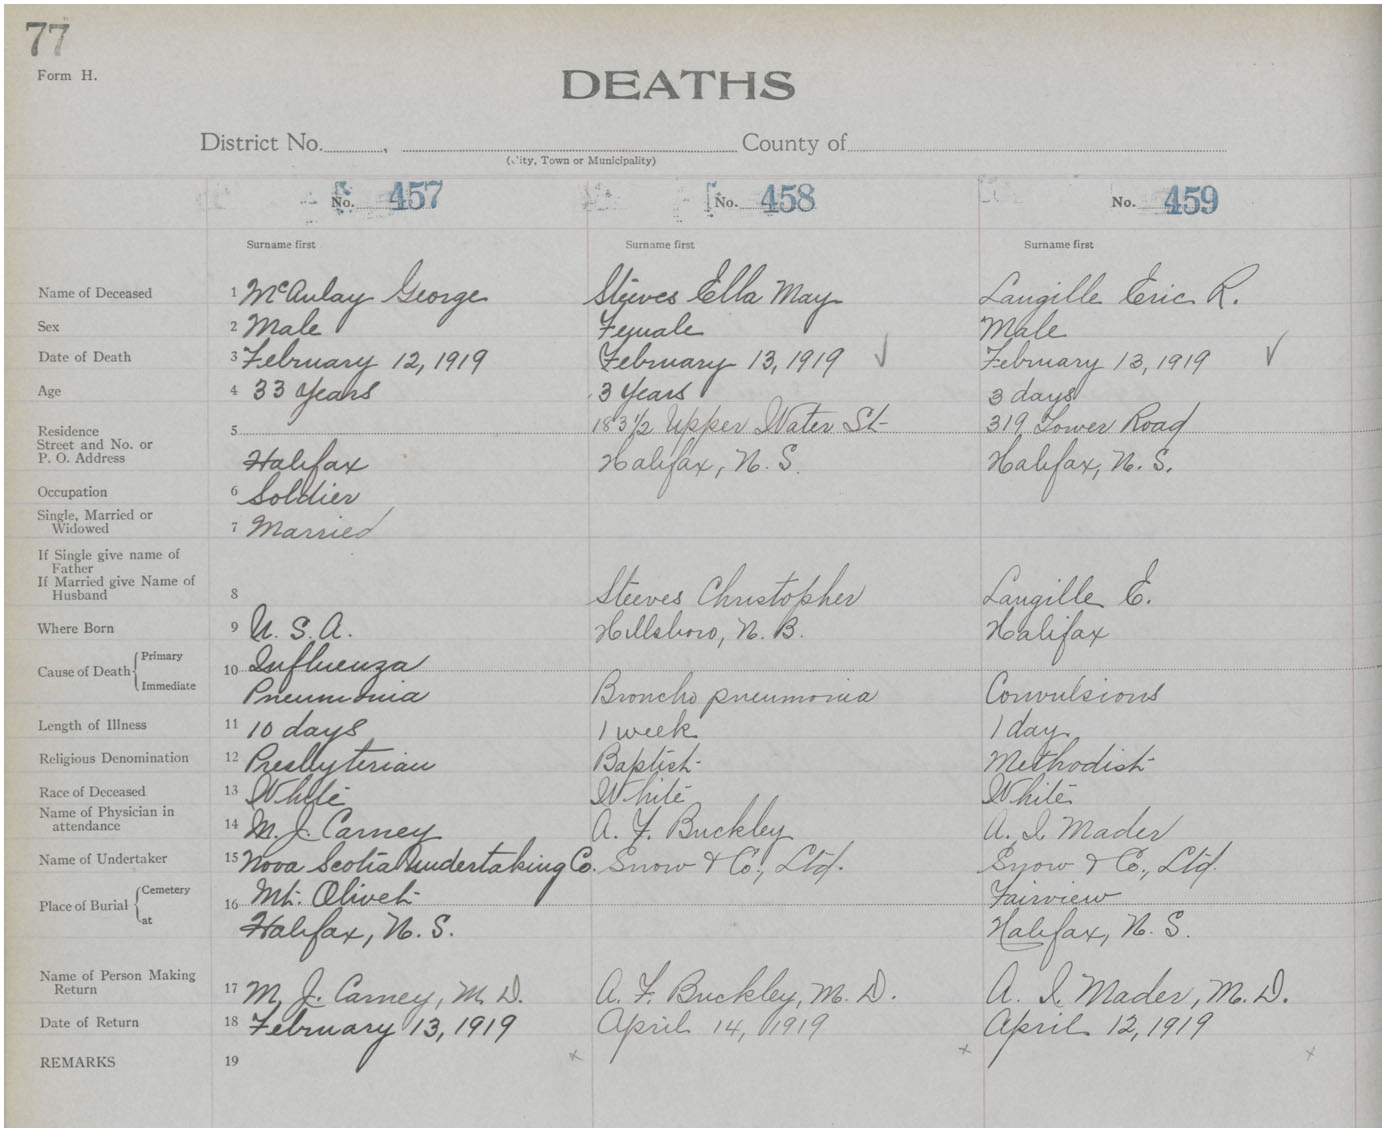 77
Form H.
DEATHS
District No. , County of
(City, Town or Municipality)
No. 457 No. 458 No. 459
Surname first Surname first Surname first
Name of Deceased 1 McAulay George Steeves Ella May Langille Eric R.
Sex 2 Male Female Male
Date of Death 3 February 12, 1919 February 13, 1919 ✓ February 13, 1919 ✓
Age 4 33 Years 3 Years 3 days
Residence 5 183 1/2 Upper Water St 319 Lower Road
Street and No. or
P. O. Address Halifax Halifax, N. S. Halifax, N. S.
Occupation 6 Soldier
Single, Married or
Widowed 7 Married
If Single give name of
Father
If Married give Name of
Husband 8 Steeves Christopher Langille E.
Where Born 9 U. S. A. Hillsboro, N. B. Halifax
Cause of Death { Primary 10 Influenza
Immediate Pneumonia Broncho pneumonia Convulsions
Length of Illness 11 10 days 1 week 1 day
Religious Denomination 12 Presbyterian Baptist Methodist
Race of Deceased 13 White White White
Name of Physician in
attendance 14 M. J. Carney A. F. Buckley A. I. Mader
Name of Undertaker 15 Nova Scotia Undertaking Co. Snow & Co., Ltd. Snow & Co., Ltd.
Place of Burial { Cemetery 16 Mt. Olivet Fairview
at Halifax, N. S. Halifax, N. S.
Name of Person Making
Return 17 M. J. Carney, M. D. A. F. Buckley, M. D. A. I. Mader, M. D.
Date of Return 18 February 13, 1919 April 14, 1919 April 12, 1919
REMARKS 19 x x x